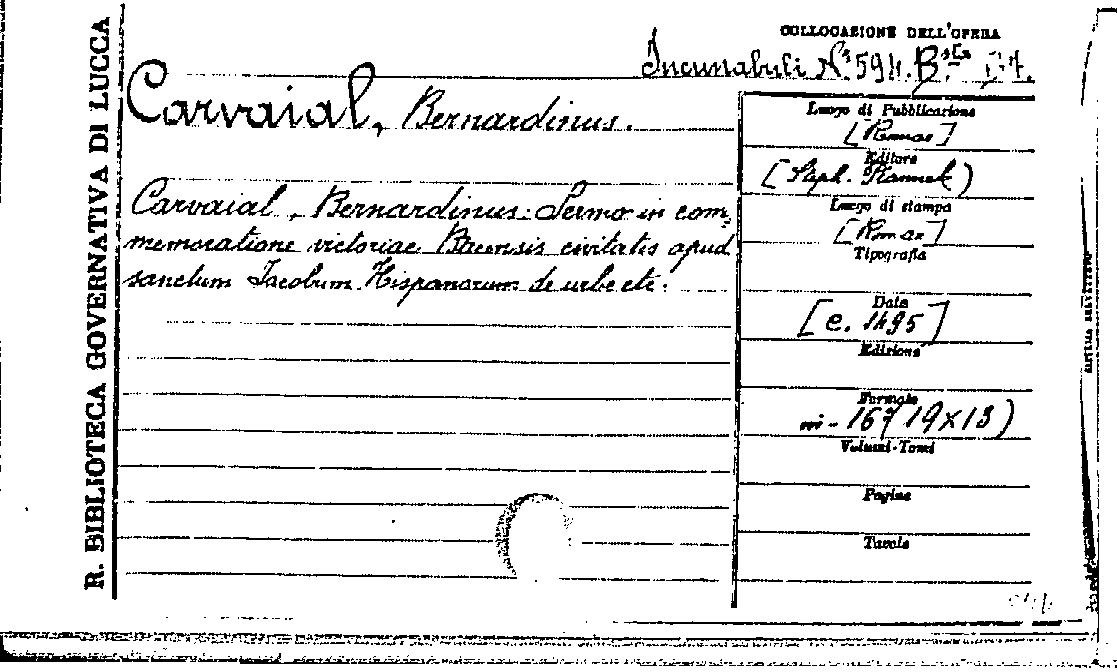 R. BIBLIOTECA GOVERNATIVA DI LUCCA
COLLOCAZIONE DELL'OPERA
Incunabuli N.° 594. B.ta
Carvaial, Bernardinus.
Carvaial, Bernardinus. Sermo in com
memoratione victoriae Bacensis civitatis apud
sanctum Jacobum Hispanorum de urbe etc.
Luogo di Pubblicazione
[Romae]
Editore
[Steph. Plannck)
Luogo di stampa
[Romae]
Tipografia
Data
[c. 1495]
Edizione
Formato
in-16° (19x13)
Volumi-Tomi
Pagine
Tavole